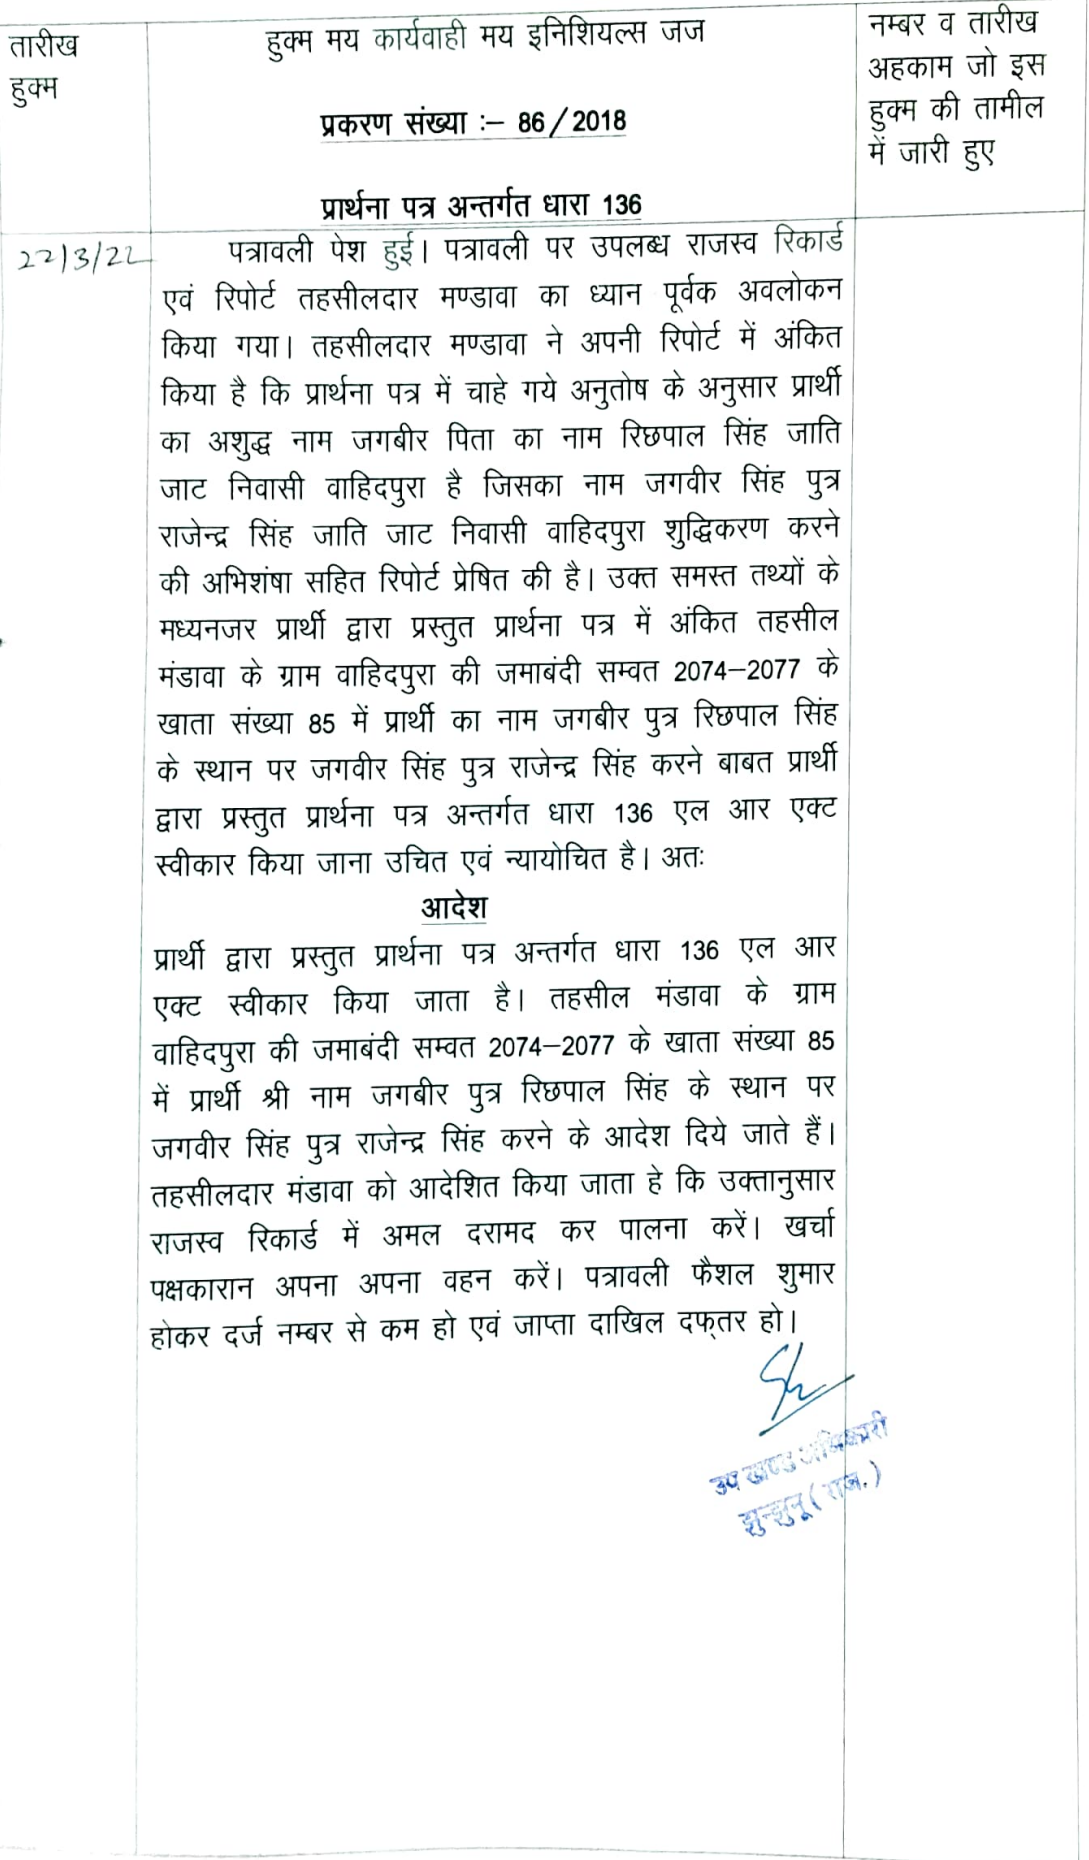 तारीख
हुक्म
हुक्म मय कार्यवाही मय इनिशियल्स जज
प्रकरण संख्या :– 86/2018
प्रार्थना पत्र अन्तर्गत धारा 136
नम्बर व तारीख
अहकाम जो इस
हुक्म की तामील
में जारी हुए
22/3/22
पत्रावली पेश हुई। पत्रावली पर उपलब्ध राजस्व रिकार्ड
एवं रिपोर्ट तहसीलदार मण्डावा का ध्यान पूर्वक अवलोकन
किया गया। तहसीलदार मण्डावा ने अपनी रिपोर्ट में अंकित
किया है कि प्रार्थना पत्र में चाहे गये अनुतोष के अनुसार प्रार्थी
का अशुद्ध नाम जगबीर पिता का नाम रिछपाल सिंह जाति
जाट निवासी वाहिदपुरा है जिसका नाम जगवीर सिंह पुत्र
राजेन्द्र सिंह जाति जाट निवासी वाहिदपुरा शुद्धिकरण करने
की अभिशंषा सहित रिपोर्ट प्रेषित की है। उक्त समस्त तथ्यों के
मध्यनजर प्रार्थी द्वारा प्रस्तुत प्रार्थना पत्र में अंकित तहसील
मंडावा के ग्राम वाहिदपुरा की जमाबंदी सम्वत 2074–2077 के
खाता संख्या 85 में प्रार्थी का नाम जगबीर पुत्र रिछपाल सिंह
के स्थान पर जगवीर सिंह पुत्र राजेन्द्र सिंह करने बाबत प्रार्थी
द्वारा प्रस्तुत प्रार्थना पत्र अन्तर्गत धारा 136 एल आर एक्ट
स्वीकार किया जाना उचित एवं न्यायोचित है। अतः
आदेश
प्रार्थी द्वारा प्रस्तुत प्रार्थना पत्र अन्तर्गत धारा 136 एल आर
एक्ट स्वीकार किया जाता है। तहसील मंडावा के ग्राम
वाहिदपुरा की जमाबंदी सम्वत 2074–2077 के खाता संख्या 85
में प्रार्थी श्री नाम जगबीर पुत्र रिछपाल सिंह के स्थान पर
जगवीर सिंह पुत्र राजेन्द्र सिंह करने के आदेश दिये जाते हैं।
तहसीलदार मंडावा को आदेशित किया जाता हे कि उक्तानुसार
राजस्व रिकार्ड में अमल दरामद कर पालना करें। खर्चा
पक्षकारान अपना अपना वहन करें। पत्रावली फैशल शुमार
होकर दर्ज नम्बर से कम हो एवं जाप्ता दाखिल दफ्तर हो।
उप खण्ड अधिकारी
झुन्झुनू (राज.)